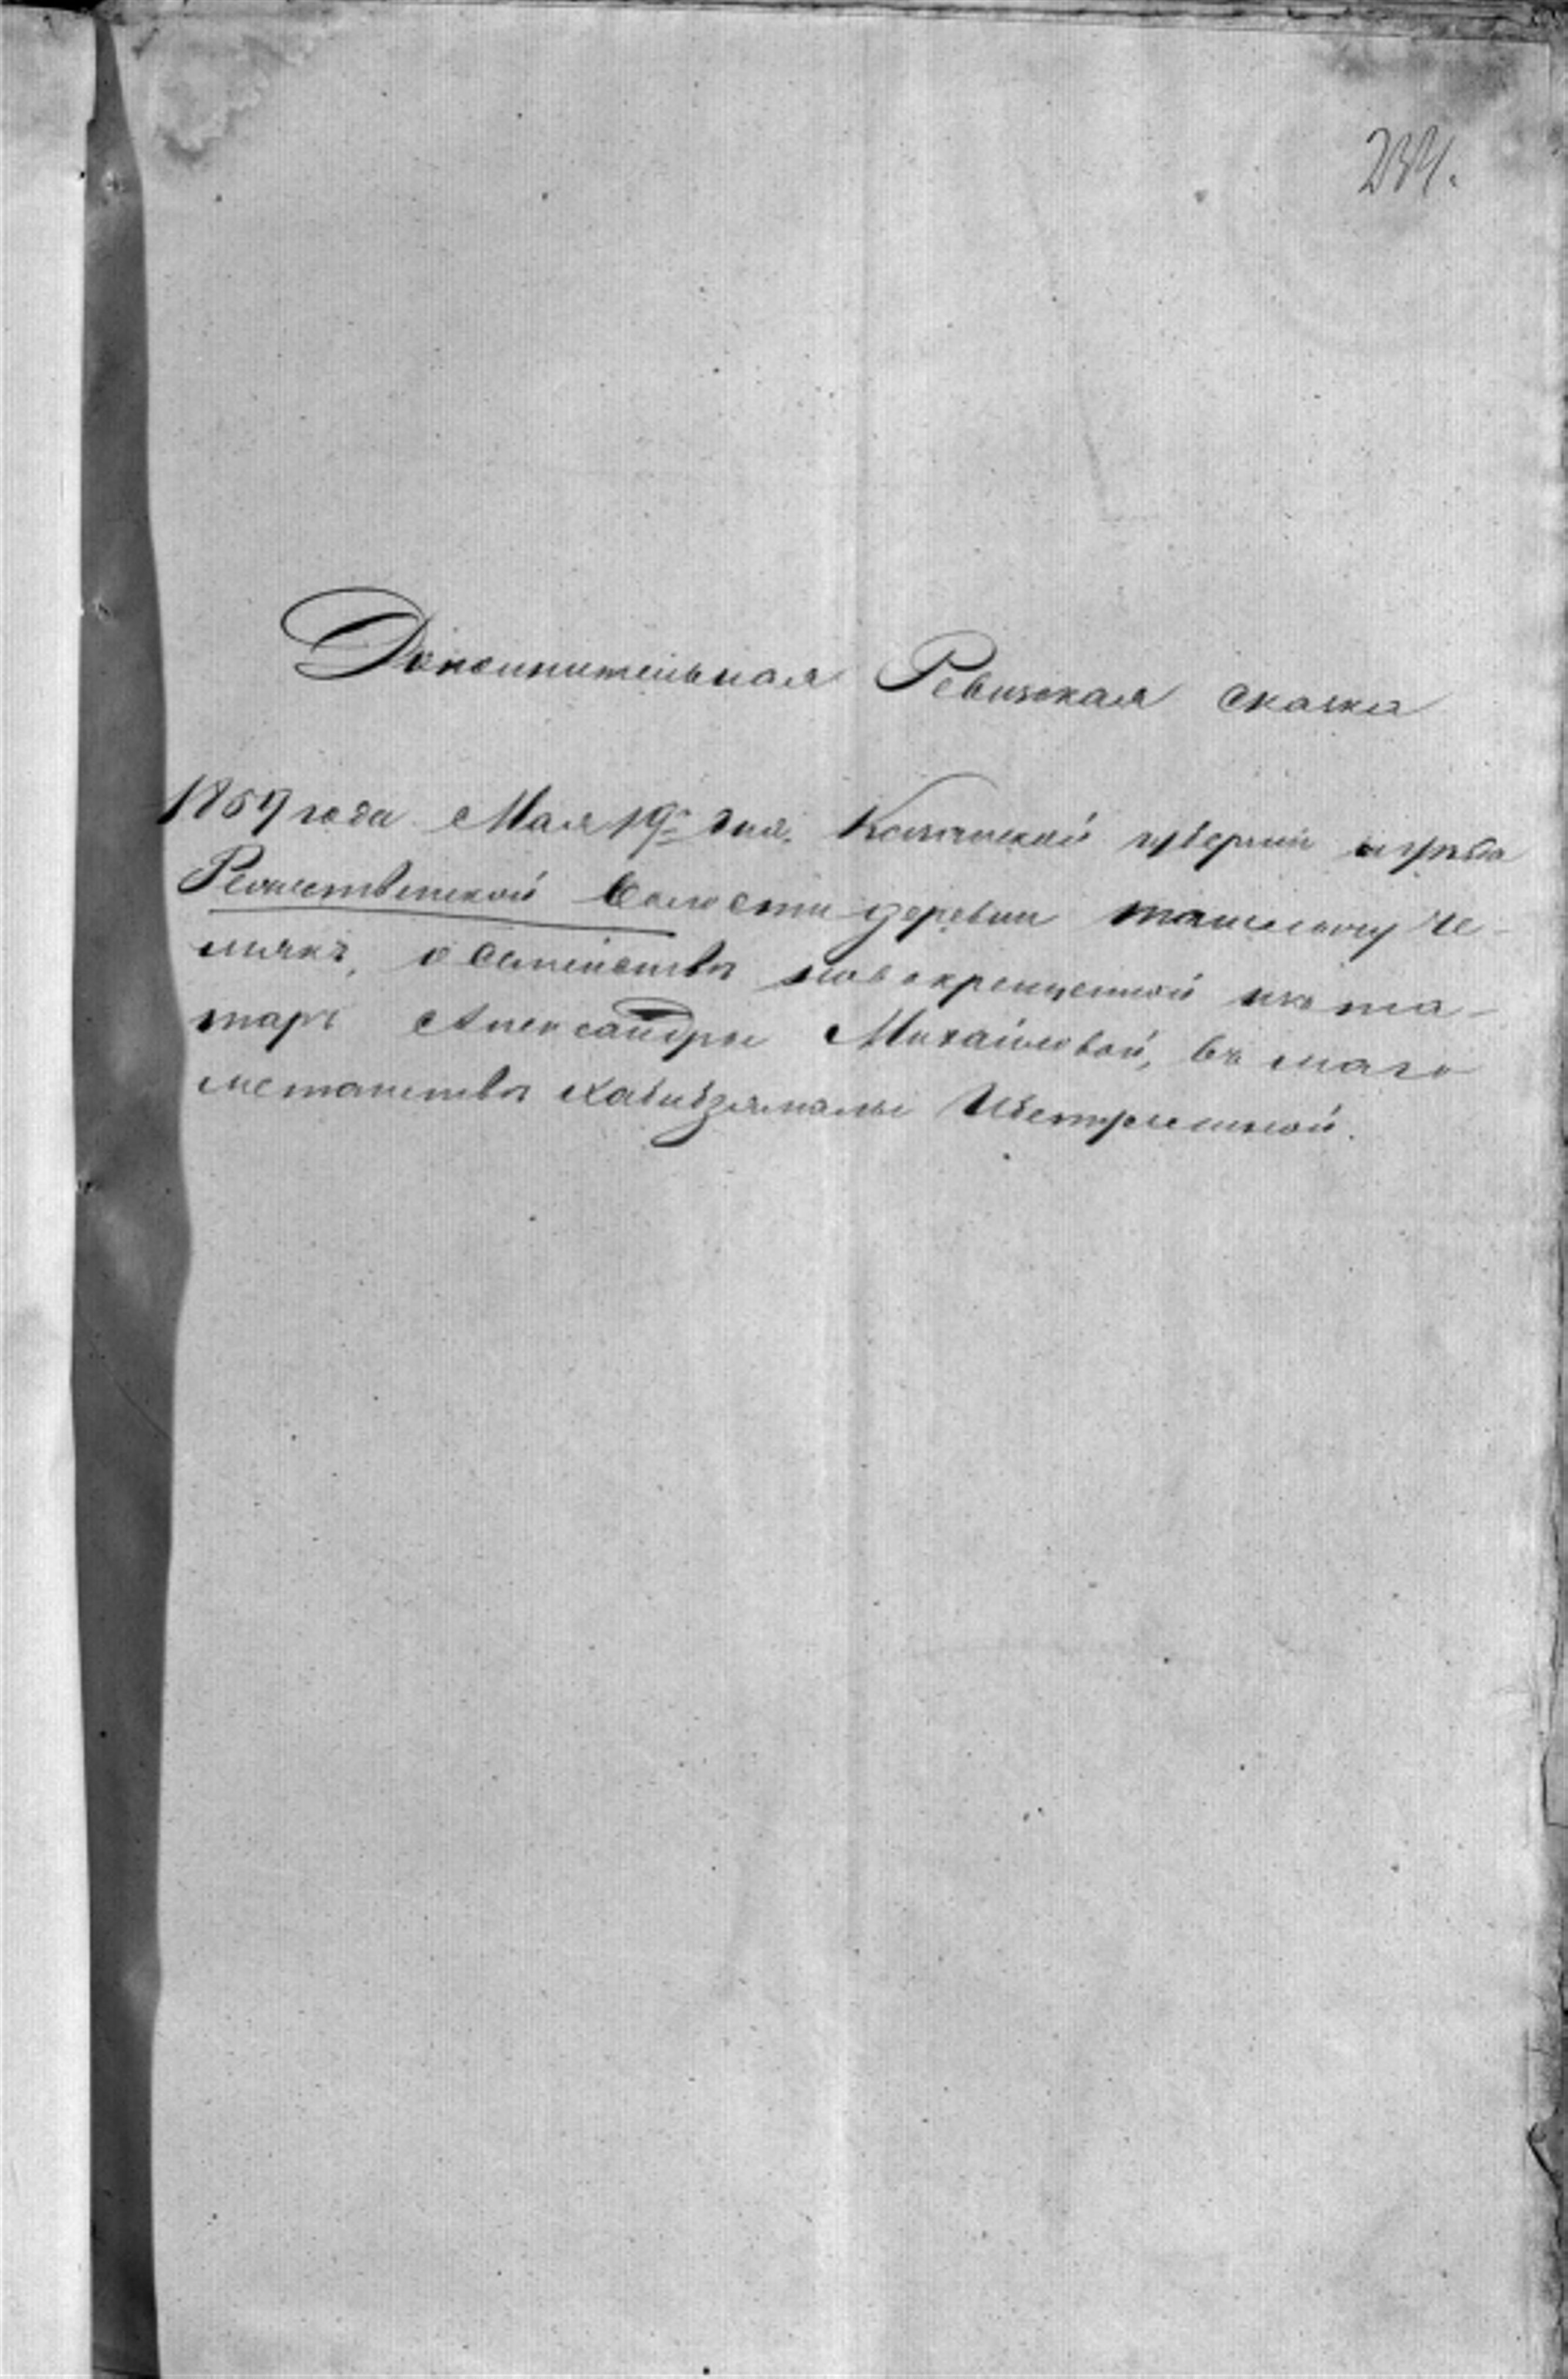 234.
Дополнительная Ревизская сказка
1859 года Мая 19го дня. Казанской губерніи и уѣзда
Рождественской волости деревни ташь Че-
, о семействѣ новокрещенной изъ та-
таръ Александры Михайловой, въ маго
метанствѣ Хабибзямалы